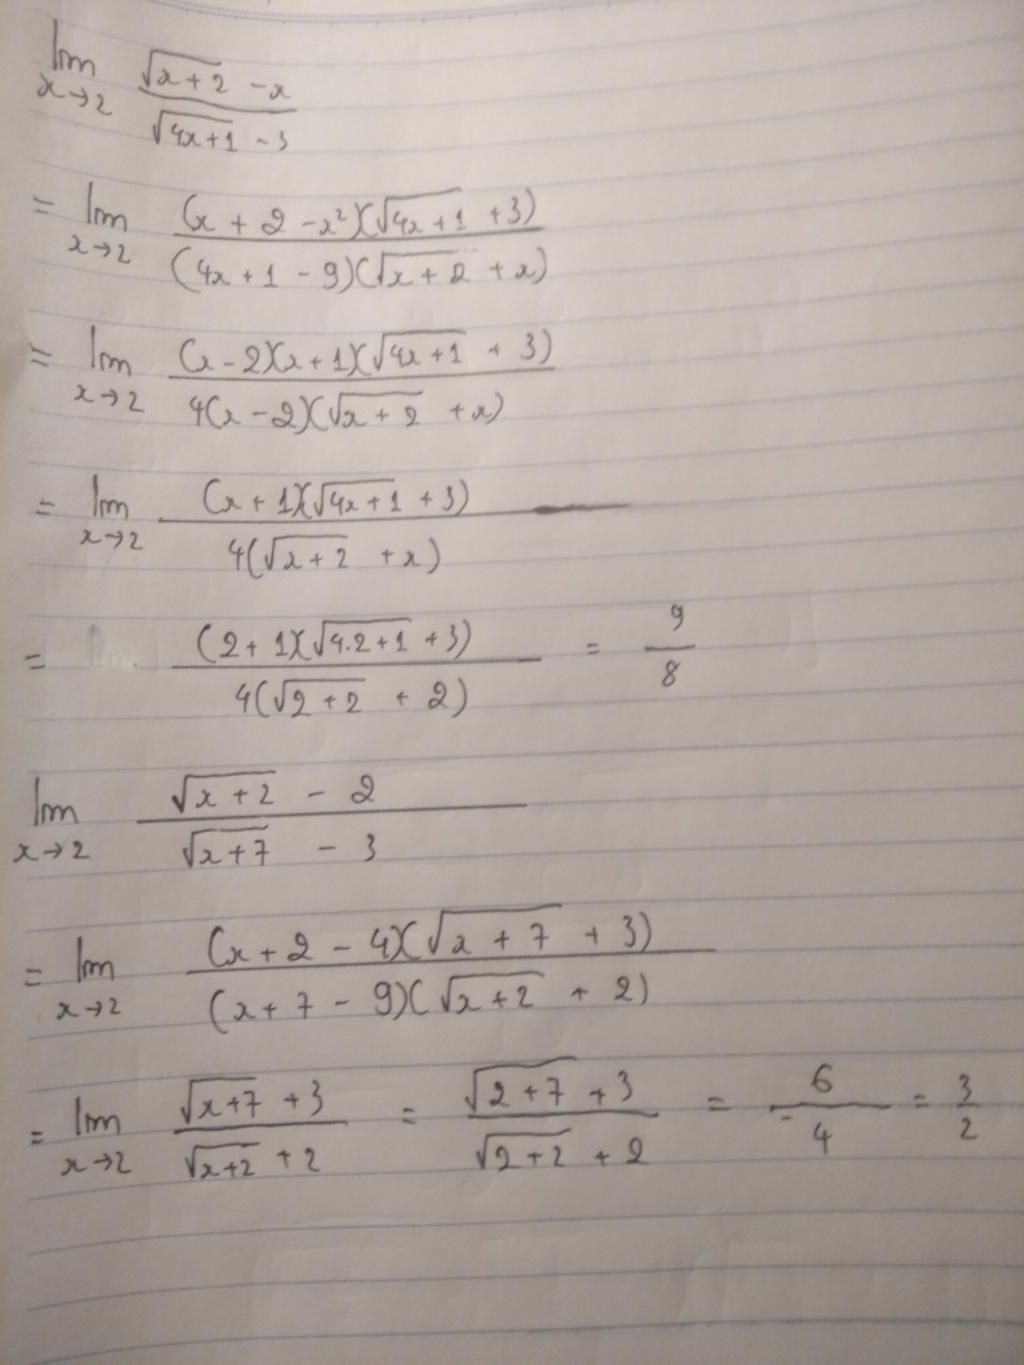 lim x→2 (√(x+2) - x)/(√(4x+1) - 3)
= lim x→2 ((x + 2 - x²)(√(4x+1) + 3))/((4x + 1 - 9)(√(x+2) + x))
= lim x→2 ((x - 2)(x + 1)(√(4x+1) + 3))/(4(x - 2)(√(x+2) + x))
= lim x→2 ((x + 1)(√(4x+1) + 3))/(4(√(x+2) + x))
= ((2 + 1)(√(4.2+1) + 3))/(4(√(2+2) + 2)) = 9/8
lim x→2 (√(x+2) - 2)/(√(x+7) - 3)
= lim x→2 ((x + 2 - 4)(√(x+7) + 3))/((x + 7 - 9)(√(x+2) + 2))
= lim x→2 (√(x+7) + 3)/(√(x+2) + 2) = (√(2+7) + 3)/(√(2+2) + 2) = 6/4 = 3/2